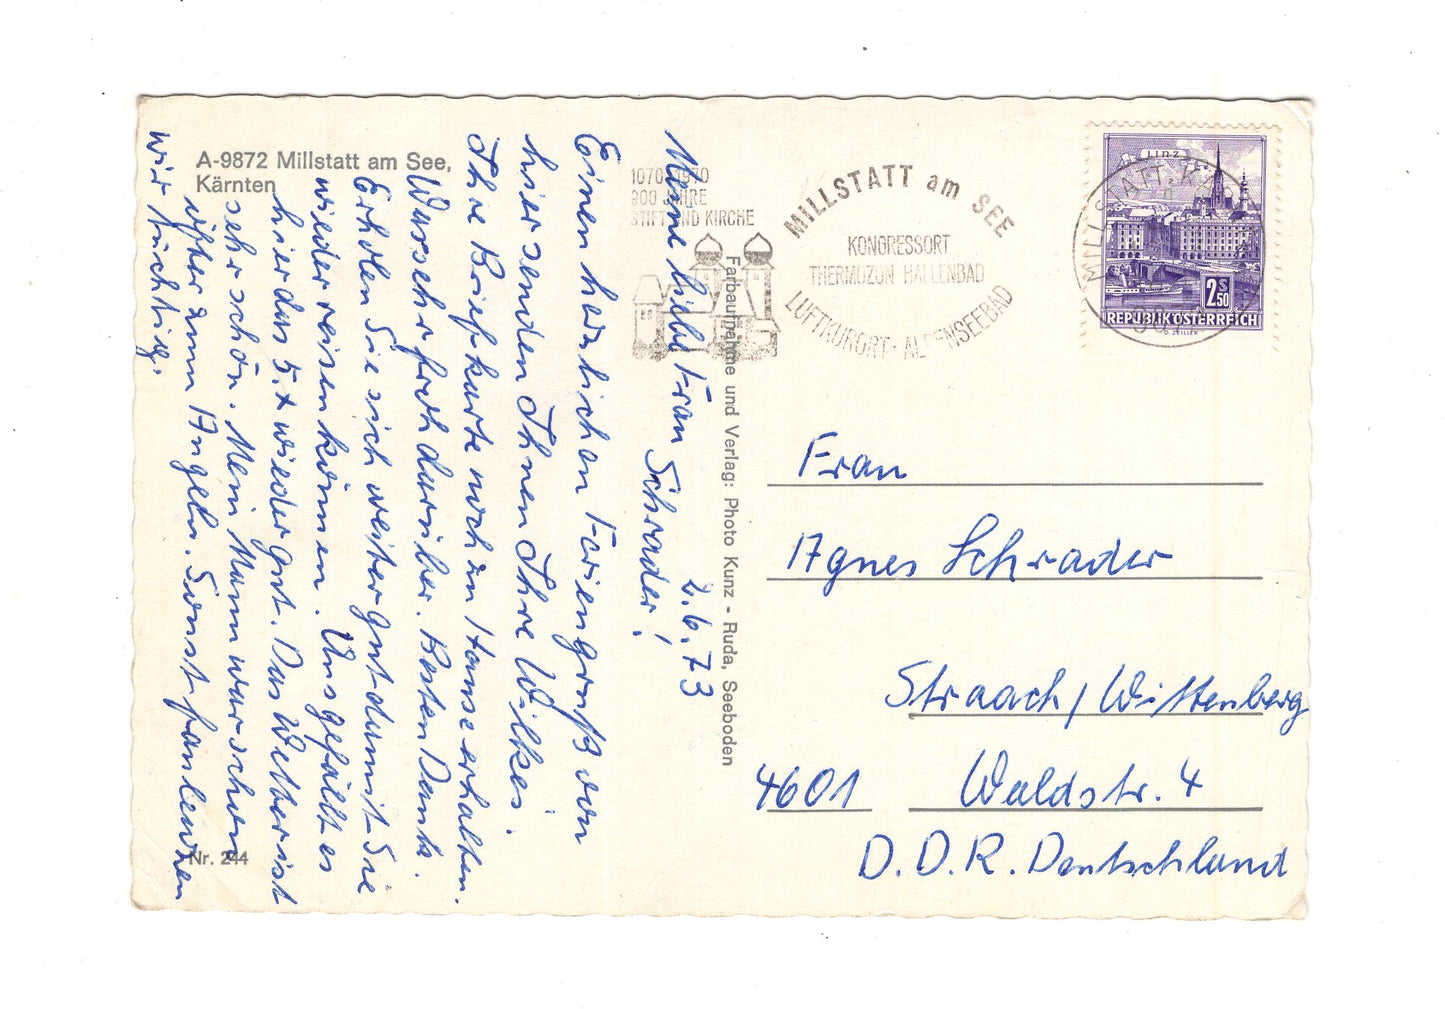 A-9872 Millstatt am See,
Kärnten
1070 1970
900 JAHRE
STIFT UND KIRCHE
MILLSTATT am SEE
KONGRESSORT
THERMOZON HALLENBAD
LUFTKURORT · ALPENSEEBAD
LINZ
2.50 S
REPUBLIK ÖSTERREICH
2.6.73
Meine liebe Frau Schrader!
Einen herzlichen Feriengruß von
hier senden Ihnen Ihre Wilkes.
Ihre Briefkarte noch im Hause erhalten.
War sehr froh darüber. Besten Dank.
Erholen Sie sich weiter gut damit Sie
wieder reisen können. Uns gefällt es
hier das 5. x wieder gut. Das Wetter ist
sehr schön. Mein Mann war schon
öfter zum Angeln. Sonst faulenzen
wir tüchtig.
Farbaufnahme und Verlag: Photo Kunz - Ruda, Seeboden
Frau
Agnes Schrader
Straach/Wittenberg
4601 Waldstr. 4
D.D.R. Deutschland
Nr. 244